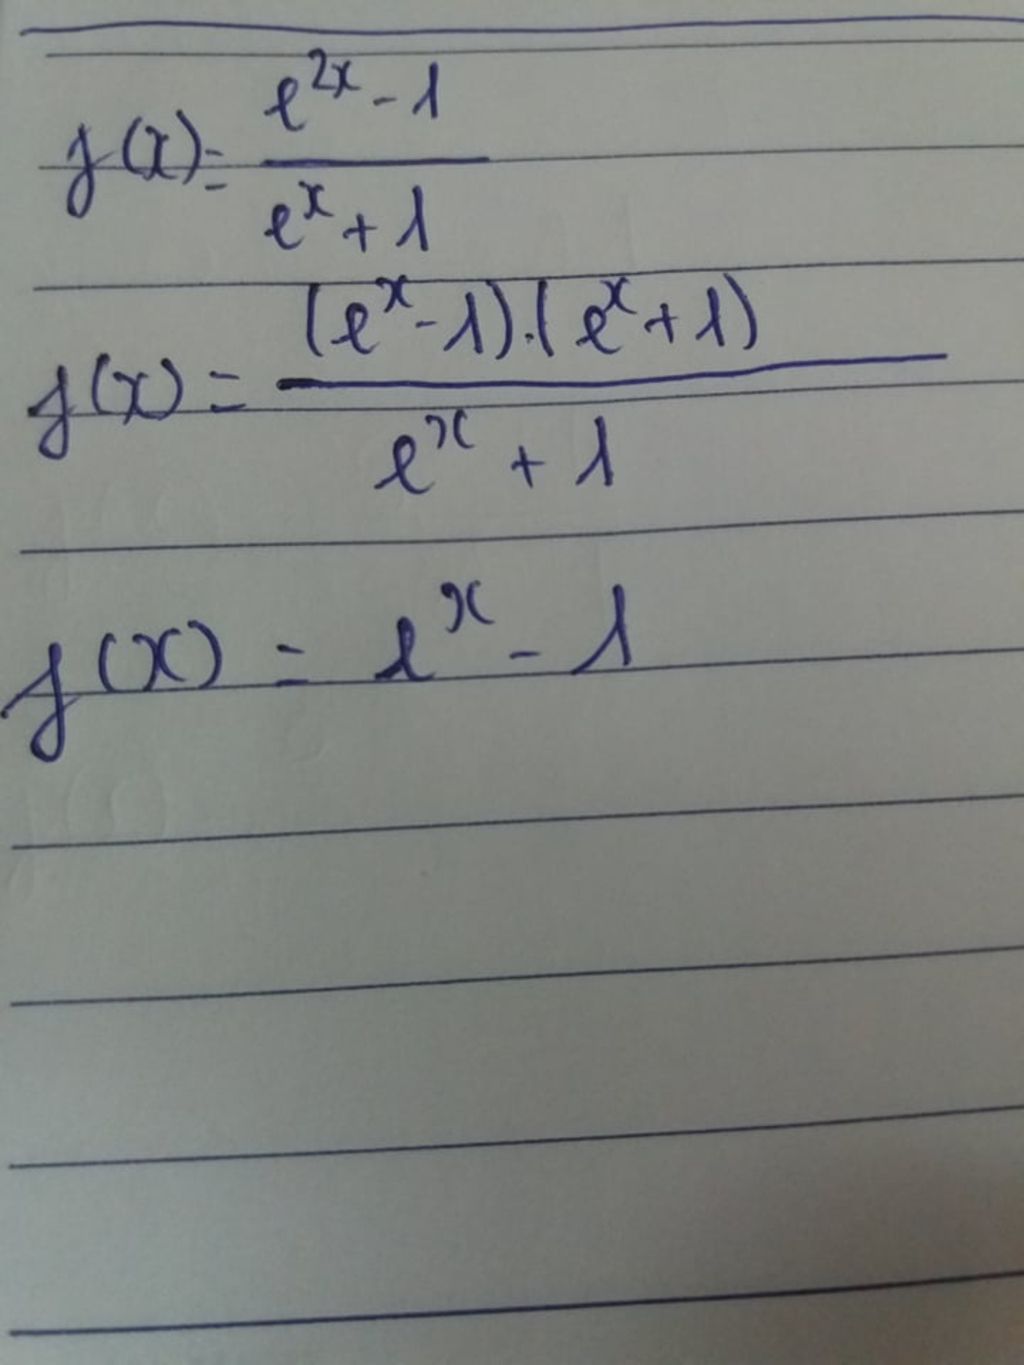 f(x) = \frac{e^{2x} - 1}{e^x + 1}
f(x) = \frac{(e^x - 1) \cdot (e^x + 1)}{e^x + 1}
f(x) = e^x - 1